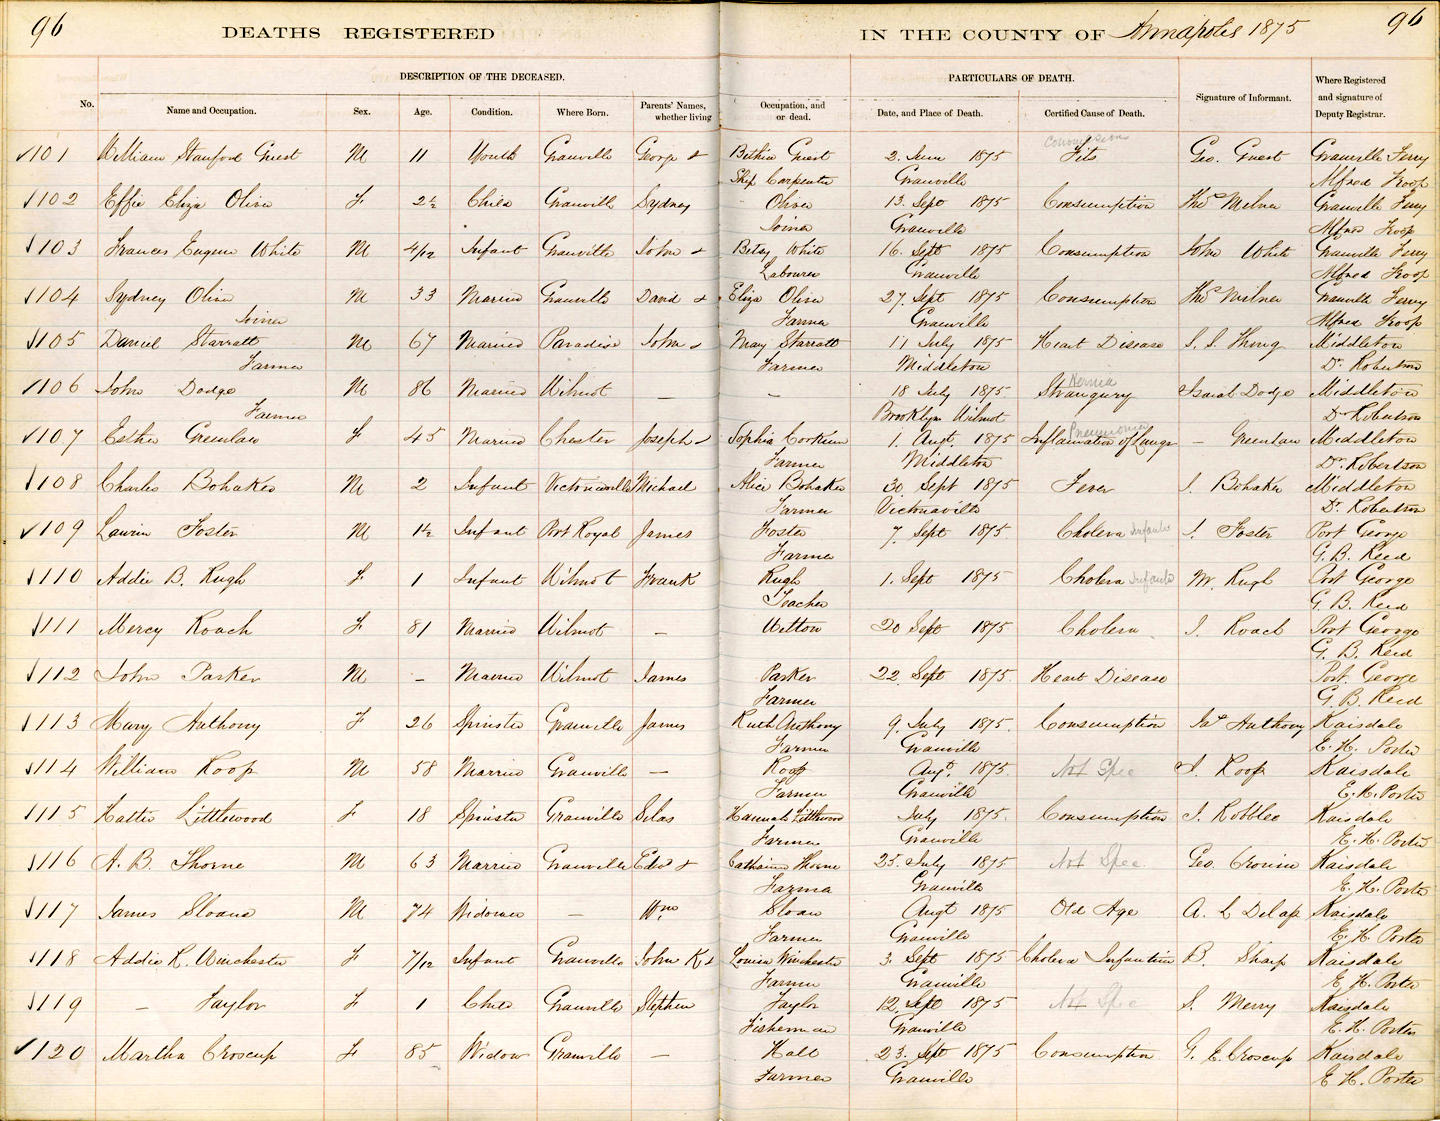 96
DEATHS REGISTERED IN THE COUNTY OF Annapolis 1875
96
DESCRIPTION OF THE DECEASED. PARTICULARS OF DEATH.
No. Name and Occupation. Sex. Age. Condition. Where Born. Parents' Names, whether living Occupation, and or dead. Date, and Place of Death. Certified Cause of Death. Signature of Informant. Where Registered and signature of Deputy Registrar.
convulsion
101 William Stanford Guest M 11 Youth Granville George & Bethia Guest 2. June 1875 Fits Geo. Guest Granville Ferry
Ship Carpenter Granville Alfred Troop
102 Effie Eliza Oliver F 2½ Child Granvill Sydney - Oliver 13. Sept 1875 Consumption Thos Milner Granville Ferry
Joiner Granville Alfred Troop
103 Frances Eugene White M 4/12 Infant Granville John & Betsy White 16. Sept 1875 Consumption John White Granville Ferry
Labourer Granville Alfred Troop
104 Sydney Oliver M 33 Married Granville David & Eliza Oliver 27. Sept 1875 Consumption Thos Milner Granville Ferry
Joiner Farmer Granville Alfred Troop
105 Daniel Starratt M 67 Married Paradise John & Mary Starratt 11 July 1875 Heart Disease Middleton
Farmer Farmer Middleton Dr. Robertson
Hernia
106 John Dodge M 86 Married Wilmot - - 18 July 1875 Strangury Isaiah Dodge Middleton
Farmer Brooklyn Wilmot Dr Robertson
Pneumonia
107 Esther Greenlaw F 45 Married Chester Joseph & Sophia 1. Augt. 1875 Inflamation of Lungs - Greenlaw Middleton
Farmer Middleton Dr. Robertson
108 Charles Bohaker M 2 Infant Victoriaville Michael Alice Bohaker 30. Sept 1875 Fever J. Bohaker Middleton
Farmer Victoriaville Dr. Robertson
109 Foster M 1½ Infant Port Royal James Foster 7. Sept 1875 Cholera Infants J. Foster Port George
Farmer G. B. Reed
110 Addie B. Rugh F 1 Infant Wilmot Frank Rugh 1. Sept 1875 Cholera Infants W. Rugh Port George
Teacher G. B. Reed
111 Mercy Roach F 81 Married Wilmot - Wilton 20 Sept 1875 Cholera J. Roach Port George
G. B. Reed
112 John Parker M - Married Wilmot James Parker 22. Sept 1875. Heart Disease Port. George
Farmer G. B Reed
113 Mary Anthony F 26 Spinster Granville James Ruth Anthony 9. July 1875. Consumption Jas Anthony Karsdale
Farmer Granville E. H. Porter
114 William Roop M 58 Married Granville - Roop Augt. 1875. Not Spec J. Roop Karsdale
Farmer Granville E. H. Porter
115 Hattie Littlewood F 18 Spinster Granville Silas Hannah Littlewood July 1875. Consumption J. Robblee Karsdale
Farmer Granville E. H. Porter
116 A. B. Thorne M 63 Married Granville Edwd & Catharine Thorne 25. July 1875 Not Spec. Geo. Cronin Karsdale
Farmer Granville E. H. Porter
117 James Sloane M 74 Widower - Wm Sloan Augt 1875 Old Age A. L Delap Karsdale
Farmer Granville E. H. Porter
118 Addie R. Winchester F 7/12 Infant Granville John K & Louisa Winchester 3. Sept 1875 Cholera Infantum B. Sharp Karsdale
Farmer Granville E. H. Porter
119 - Taylor F 1 Child Granville Stephen Taylor 12. Sept 1875 Not Spec S. Merry Karsdale
Fisherman Granville E. H. Porter
120 Martha Croscup F 85 Widow Granville - Hall 23. Sept 1875 Consumption G. E. Croscup Karsdale
Farmer Granville E H. Porter